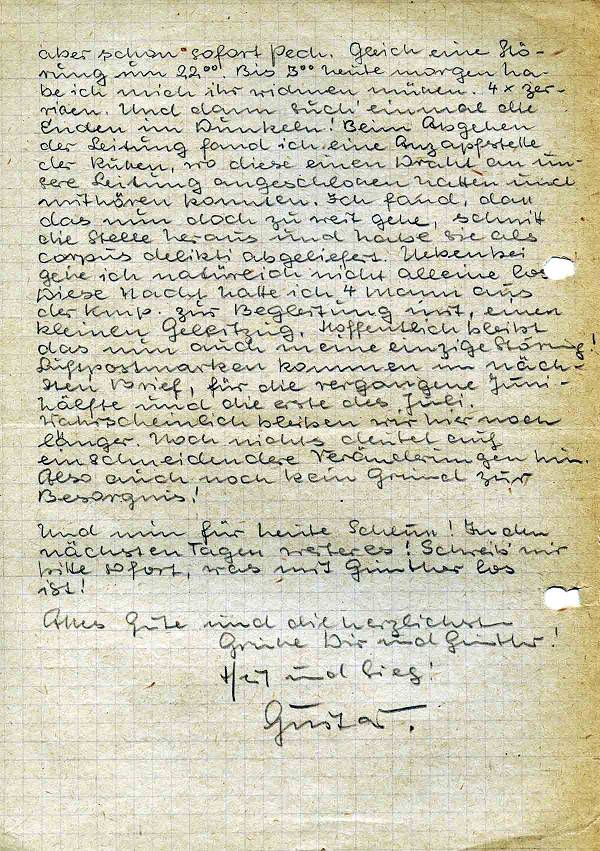 aber schon sofort Pech. Gleich eine Stö-
rung um 22⁰⁰. Bis 3⁰⁰ heute morgen ha-
be ich mich ihr widmen müssen. 4x zer-
rissen. Und dann such' einmal die
Enden im Dunkeln! Beim Abgehen
der Leitung fand ich eine Anzapfstelle
der Russen, wo diese einen Draht an un-
sere Leitung angeschlossen hatten und
mithören konnten. Ich fand, dass
das nun doch zu weit gehe, schnitt
die Stelle heraus und habe sie als
corpus delikti abgeliefert. Nebenbei
gehe ich natürlich nicht alleine los
Diese Nacht hatte ich 4 Mann aus
der Kmp. zur Begleitung mit, einen
kleinen Geleitzug. Hoffentlich bleibt
das nun auch meine einzige Störung!
Luftpostmarken kommen im näch-
sten Brief, für die vergangene Juni-
hälfte und die erste des Juli.
Wahrscheinlich bleiben wir hier noch
länger. Noch nichts deutet auf
einschneidendere Veränderungen hin.
Also auch noch kein Grund zur
Besorgnis!
Und nun für heute Schluss! In den
nächsten Tagen weiteres! Schreib' mir
bitte sofort, was mit Günther los
ist!
Alles Gute und die herzlichsten
Grüsse Dir und Günther!
Heil und Sieg!
Gustav.